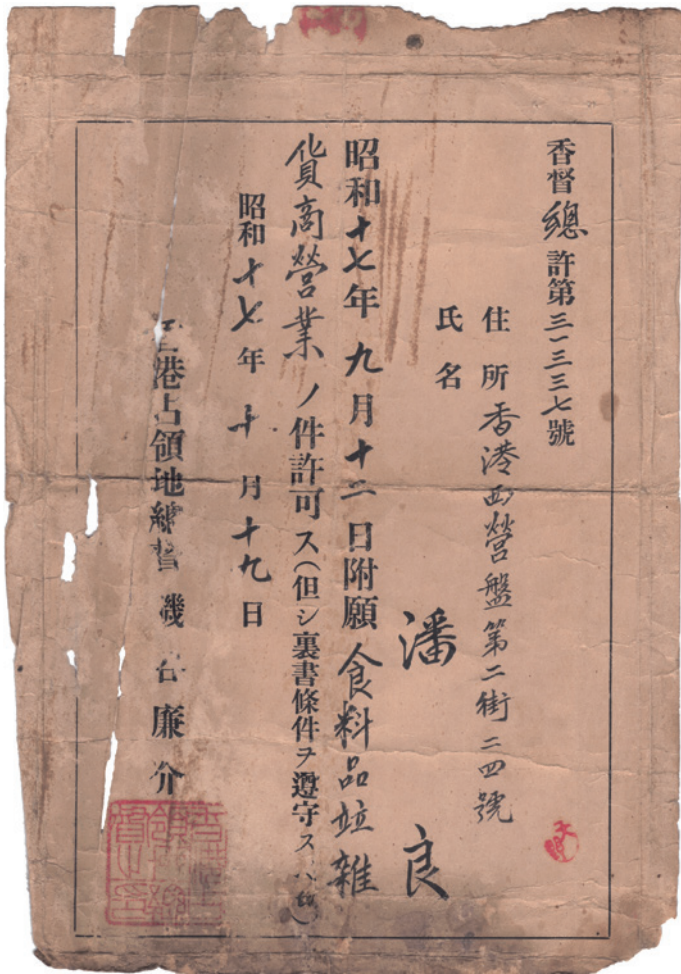 香督總許第三一三三七號
住所香港西營盤第二街二四號
氏名 潘良
昭和十七年九月十二日附願食料品並雜
貨商營業ノ件許可ス(但シ裏書條件ヲ遵守スヘ
昭和十七年十月十九日
港占領地總督 磯谷廉介